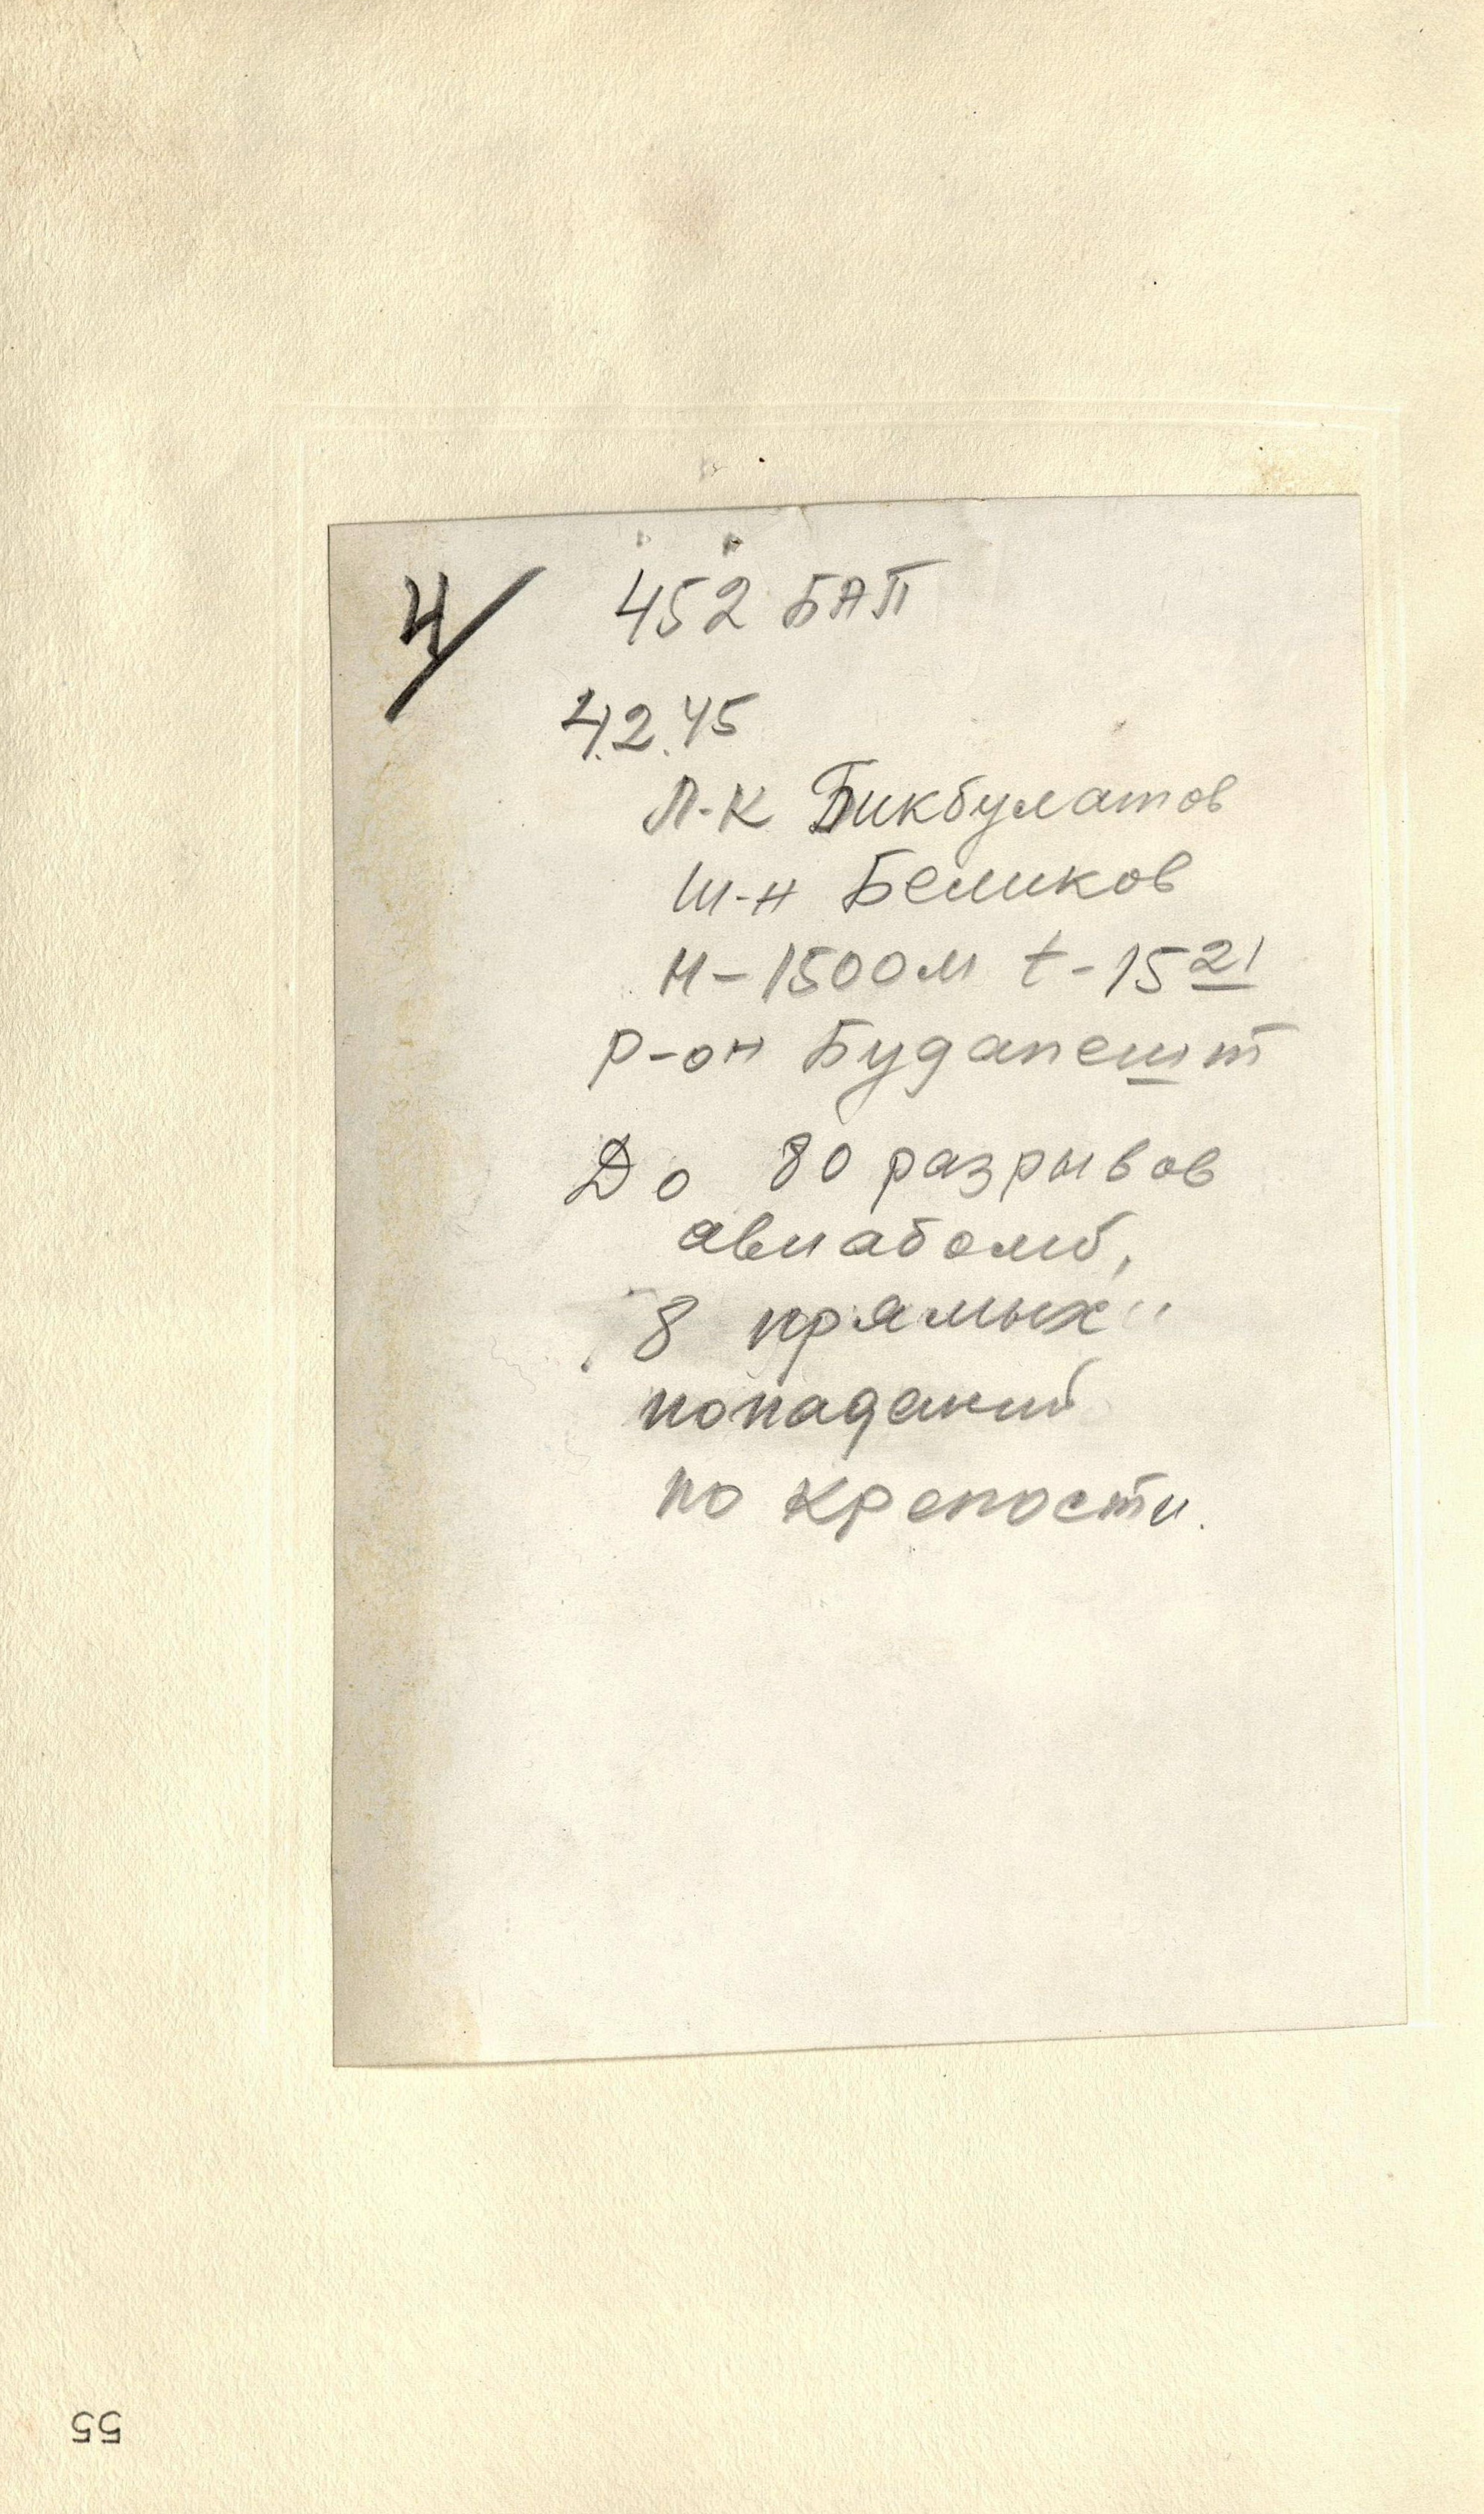 4/
452 БАП
4.2.45
Л-к Бикбулатов
Ш-н Беликов
H-1500м t-15 21
Р-он Будапешт
До 80 разрывов
авиабомб,
8 прямых
попаданий
по крепости.
55